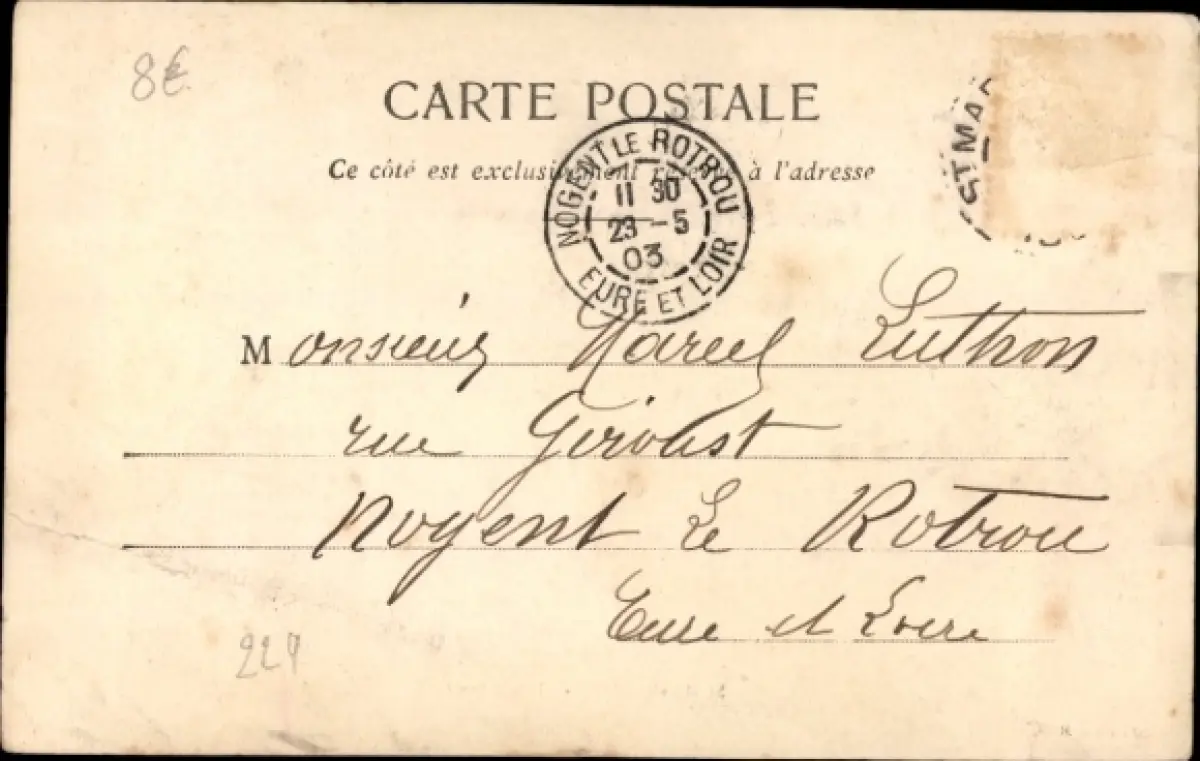 8€
CARTE POSTALE
Ce côté est exclusivement réservé à l'adresse
NOGENT LE ROTROU
11 30
23 - 5
03
EURE ET LOIR
ST MA
Monsieur Marcel Luthon
rue Giroust
Nogent Le Rotrou
Eure et Loire